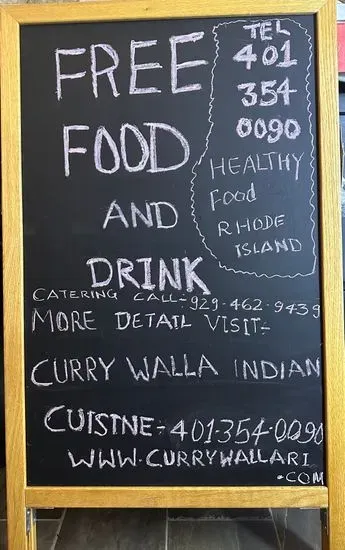 FREE
FOOD
AND
DRINK
TEL
401
354
0090
HEALTHY
Food
RHODE
ISLAND
CATERING CALL-929-462-9439
MORE DETAIL VISIT-
CURRY WALLA INDIAN
CUISTNE-401-354-0090
WWW.CURRYWALLARI
.COM